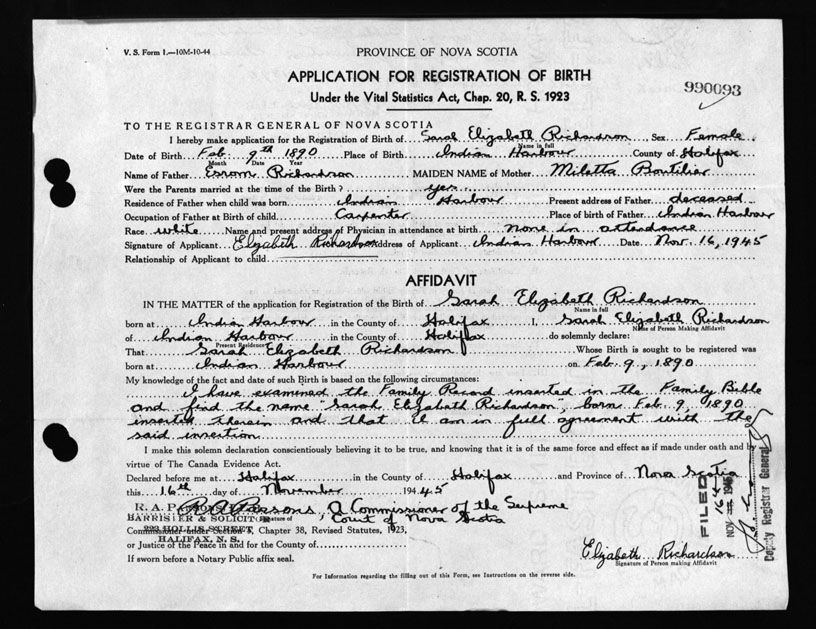 V. S. Form 1.—10M-10-44
PROVINCE OF NOVA SCOTIA
APPLICATION FOR REGISTRATION OF BIRTH
Under the Vital Statistics Act, Chap. 20, R. S. 1923
990093
TO THE REGISTRAR GENERAL OF NOVA SCOTIA
I hereby make application for the Registration of Birth of Sarah Elizabeth Richardson Sex Female
Name in full
Date of Birth Feb. 9th 1890 Place of Birth Indian Harbour County of Halifax
Month Date Year
Name of Father Esrom Richardson MAIDEN NAME of Mother Miletta Boutilier
Were the Parents married at the time of the Birth? yes
Residence of Father when child was born Indian Harbour Present address of Father deceased
Occupation of Father at Birth of child Carpenter Place of birth of Father Indian Harbour
Race white Name and present address of Physician in attendance at birth None in attendance
Signature of Applicant Elizabeth Richardson Address of Applicant Indian Harbour Date Nov. 16, 1945
Relationship of Applicant to child
AFFIDAVIT
IN THE MATTER of the application for Registration of the Birth of Sarah Elizabeth Richardson
Name in full
born at India Harbour in the County of Halifax I, Sarah Elizabeth Richardson
Name of Person Making Affidavit
of Indian Harbour in the County of Halifax do solemnly declare:
Present Residence
That Sarah Elizabeth Richardson Whose Birth is sought to be registered was
born at Indian Harbour on Feb. 9, 1890
My knowledge of the fact and date of such Birth is based on the following circumstances:
I have examined the Family Record inserted in the Family Bible
and find the name Sarah Elizabeth Richardson, born Feb. 9, 1890
inserted therein and that I am in full agreement with the
said insertion
I make this solemn declaration conscientiously believing it to be true, and knowing that it is of the same force and effect as if made under oath and by
virtue of The Canada Evidence Act.
Declared before me at Halifax in the County of Halifax and Province of Nova Scotia
this 16th day of November 194 45
R. A. Parsons, A Commissioner of the Supreme
Court of Nova Scotia
BARRISTER & SOLICITOR
Signature of
HOLLIS STREET
HALIFAX, N. S.
Commissioner under Section 1, Chapter 38, Revised Statutes, 1923,
or Justice of the Peace in and for the County of
If sworn before a Notary Public affix seal.
Elizabeth Richardson
Signature of Person making Affidavit
For Information regarding the filling out of this Form, see Instructions on the reverse side.
FILED
NOV 1945
Deputy Registrar General